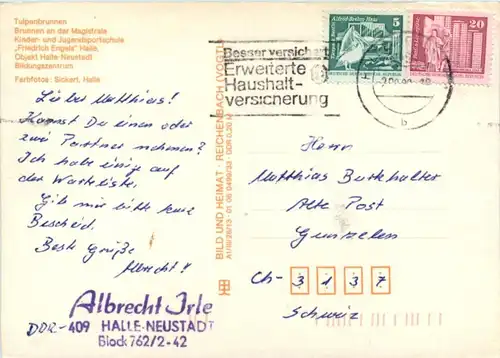 Tulpenbrunnen
Brunnen an der Magistrale
Kinder- und Jugendsportschule
„Friedrich Engels" Halle,
Objekt Halle Neustadt
Bildungszentrum
Farbfotos: Sickert, Halle
Lieber Matthias!
Kannst Du einen oder
zwei Partner nehmen?
Ich habe einige auf
der Warteliste.
Gib mir bitte kurz
Bescheid.
Beste Grüße
Albrecht!
Albrecht Irle
DDR-409 HALLE-NEUSTADT
Block 762/2-42
BILD UND HEIMAT · REICHENBACH (VOGTL)
Besser versichert
Erweiterte
Haushalt-
versicherung
5
20
b
Herrn
Matthias Burkhalter
Alte Post
Gurzelen
Ch- 3137
Schweiz